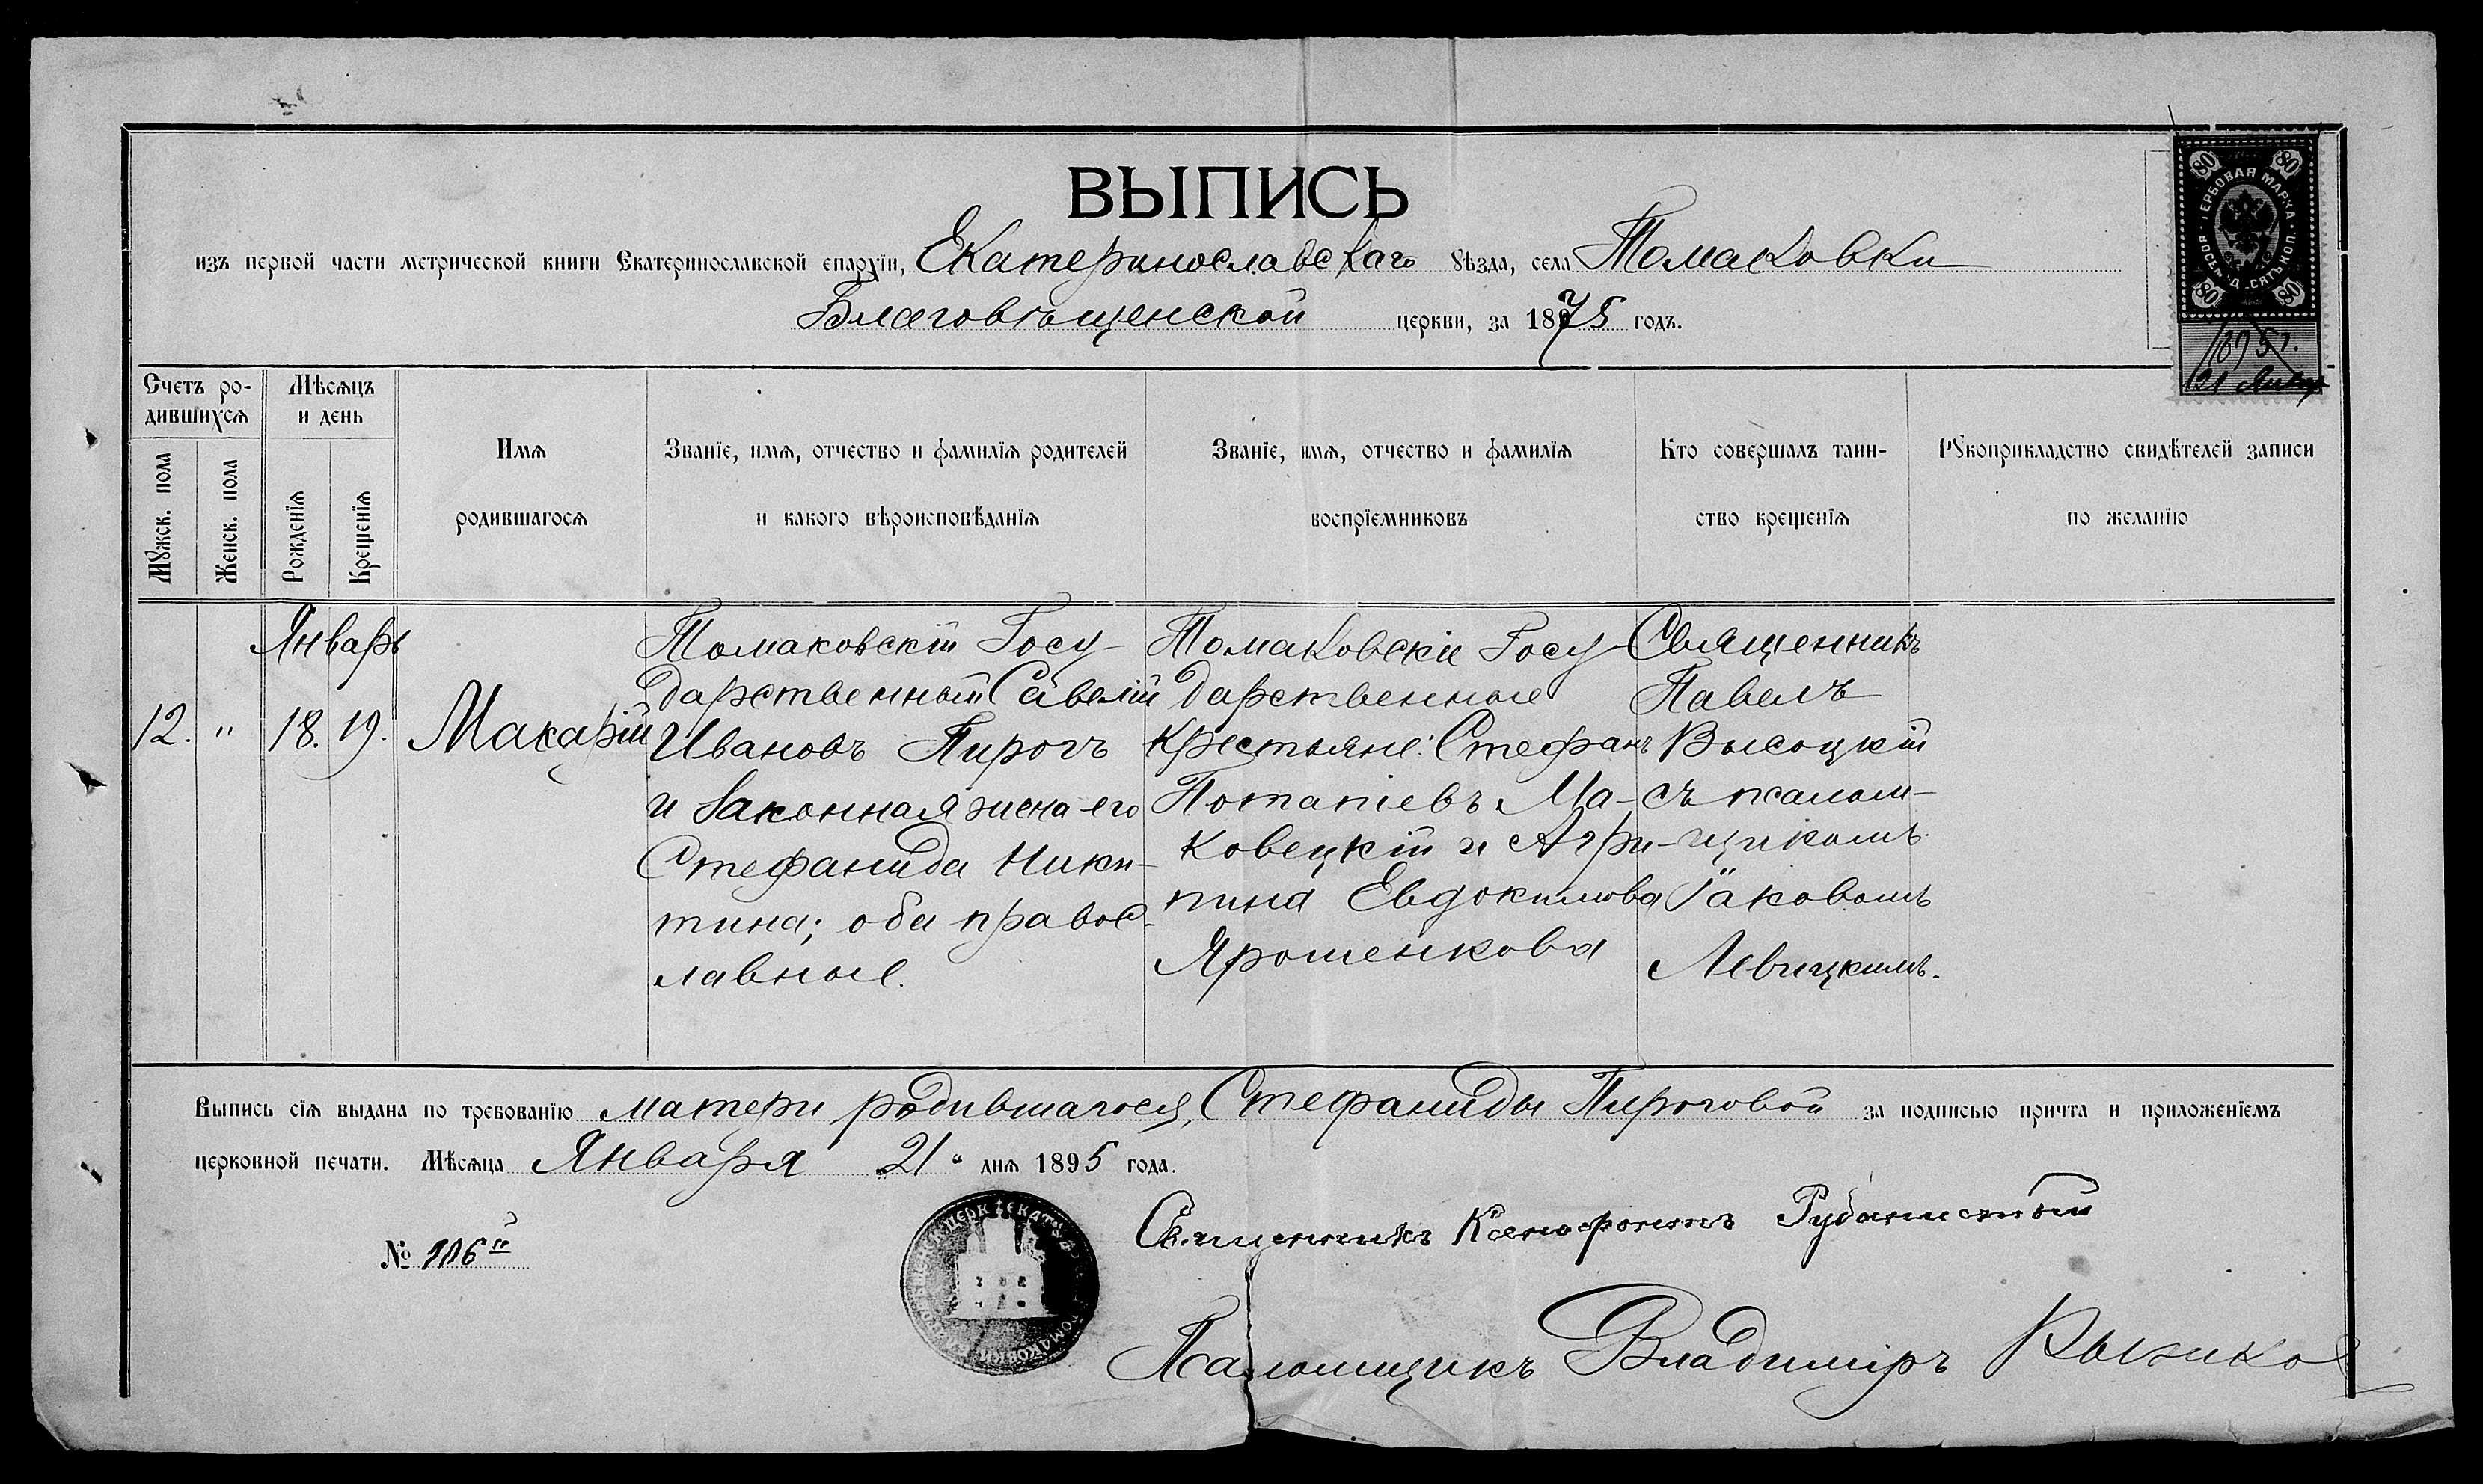 ВЫПИСЬ
изъ первой части метрической книги Екатеринославской епархіи, Екатеринославскаго уѣзда, села Томаковки
Благовѣщенской церкви, за 1875 годъ.
ГЕРБОВАЯ МАРКА
ВОСЕМЬДЕСЯТЪ КОП.
80 80
80 80
1895 г.
21 Янвр
Счетъ ро-
дившихся
Мужск. пола
Женск. пола
Мѣсяцъ
и день
Рожденія
Крещенія
Имя
родившагося
Званіе, имя, отчество и фамилія родителей
и какого вѣроисповѣданія
Званіе, имя, отчество и фамилія
воспріемниковъ
Кто совершалъ таин-
ство крещенія
Рукоприкладство свидѣтелей записи
по желанію
12. "
Январь
18. 19.
Макарій
Томаковскій Госу-
дарственный Савелій
Ивановъ Пирогъ
и законная жена его
Стефанида Ники-
тина; оба правос-
лавные.
Томаковскіе Госу-
дарственные
крестьяне: Стефанъ
Потапіевъ Ма-
ковецкій и Агри-
пина Евдокимова
Ярошенкова
Священникъ
Павелъ
Высоцкій
съ псалом-
щикомъ
Іаковомъ
Левицкимъ.
Выпись сія выдана по требованію матери родившагося, Стефаниды Пироговой за подписью причта и приложеніемъ
церковной печати. Мѣсяца Января 21 " дня 1895 года.
№ 106й
Священникъ Ксенофонтъ
Псаломщикъ Владиміръ